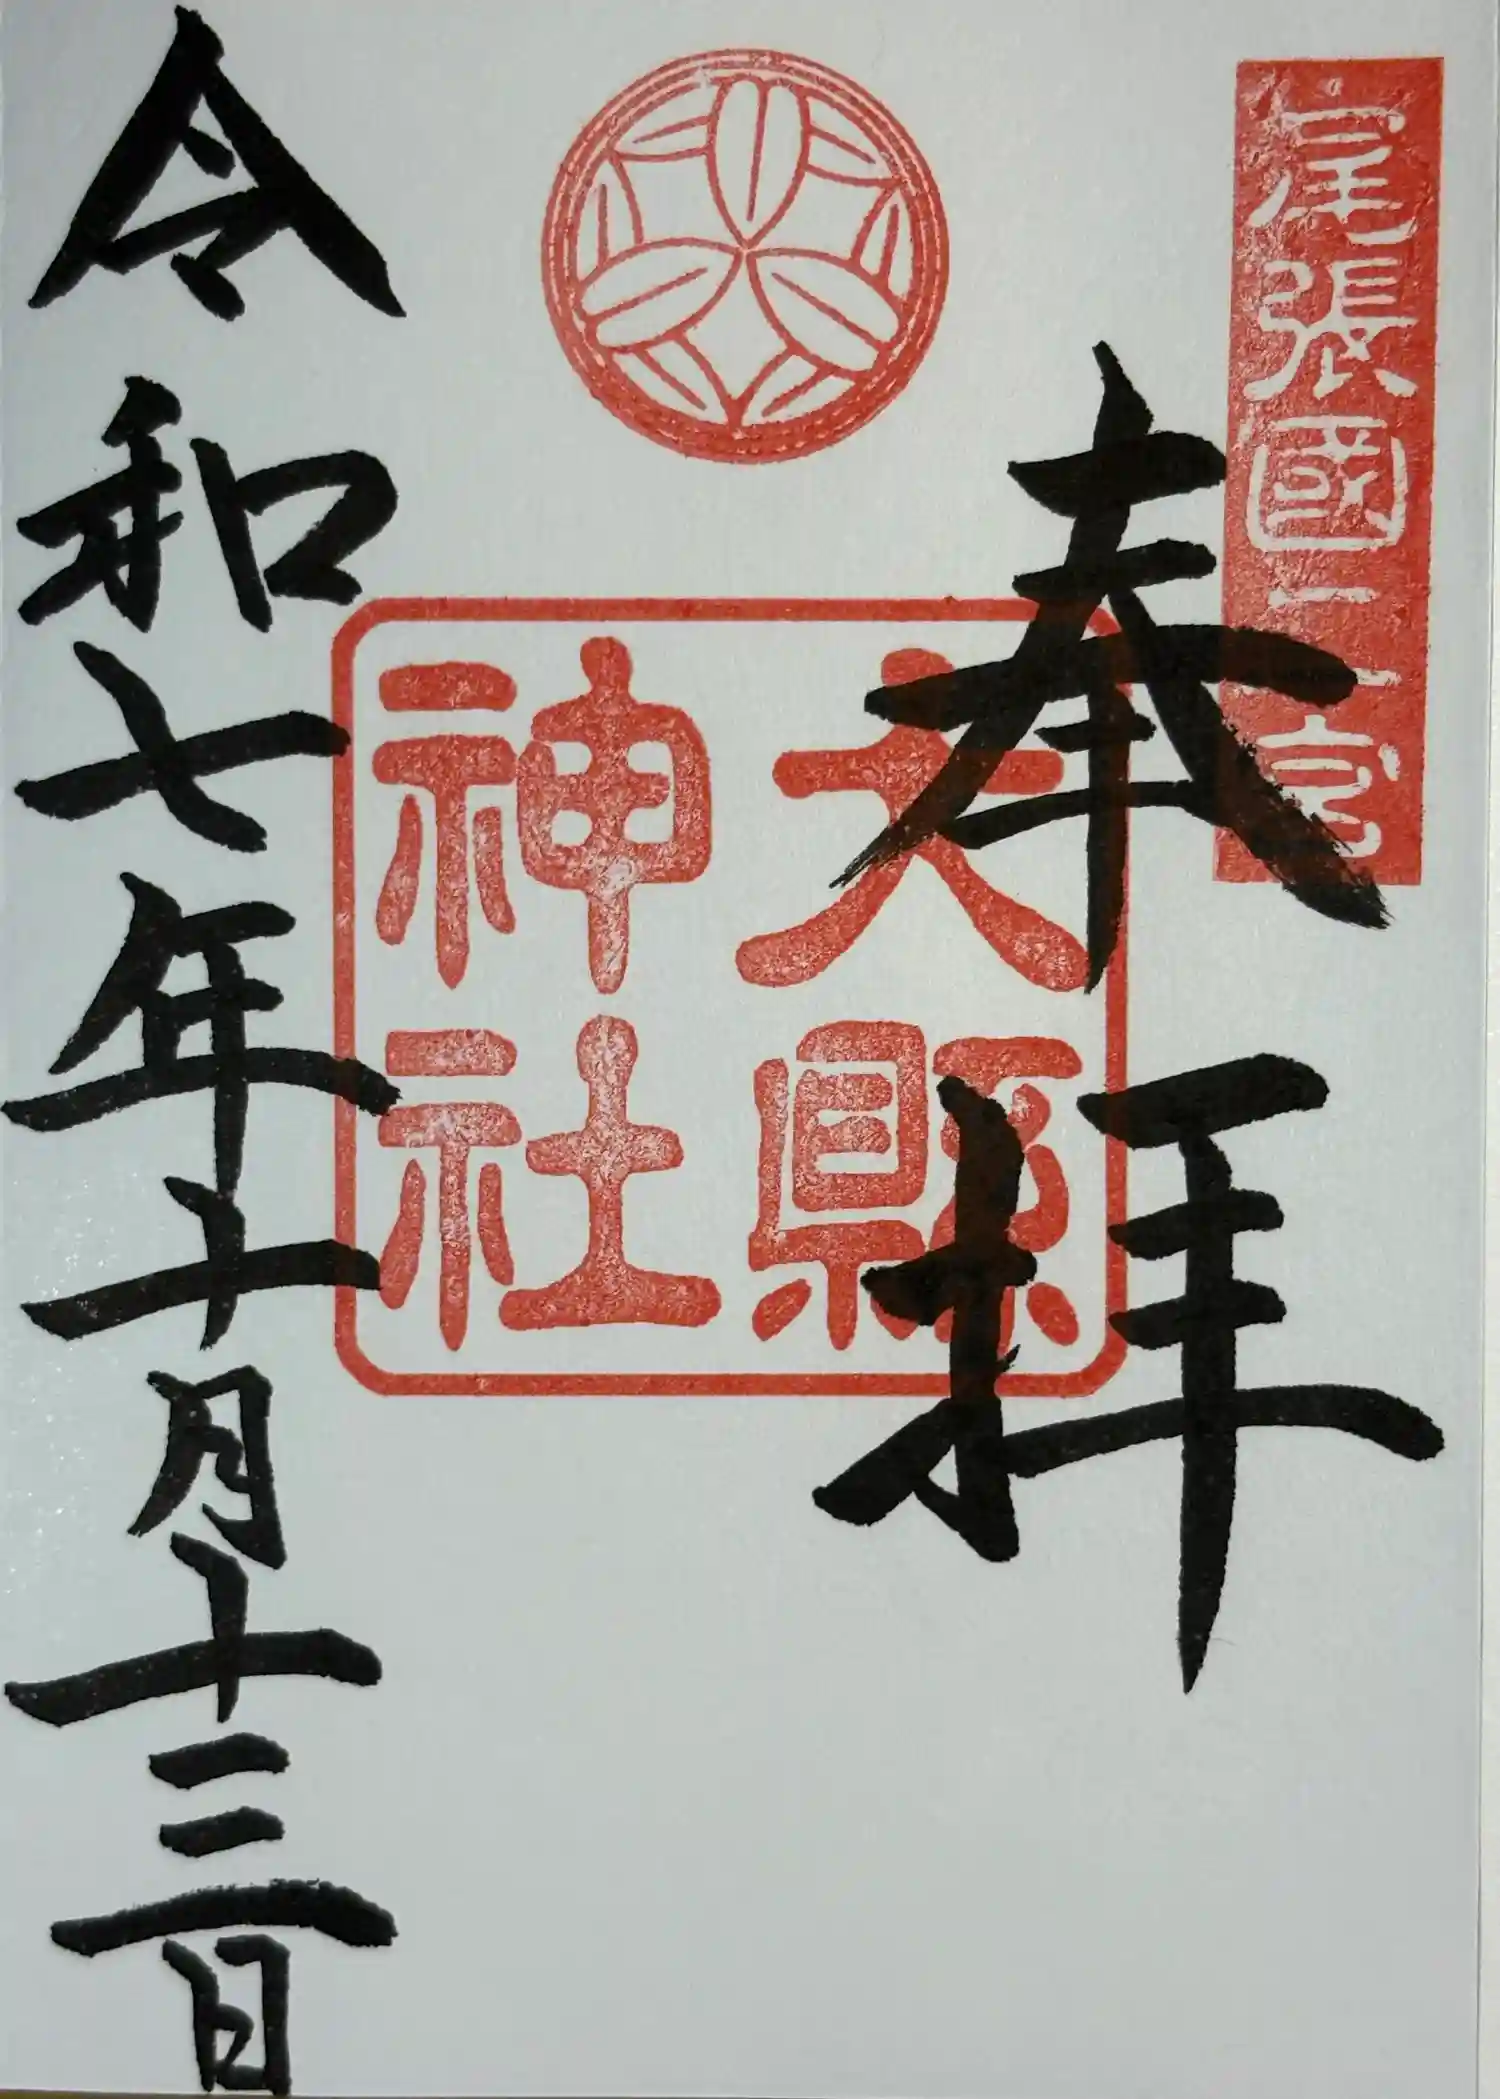 尾張國二宮
奉拝
大縣
神社
令和七年十月十三日